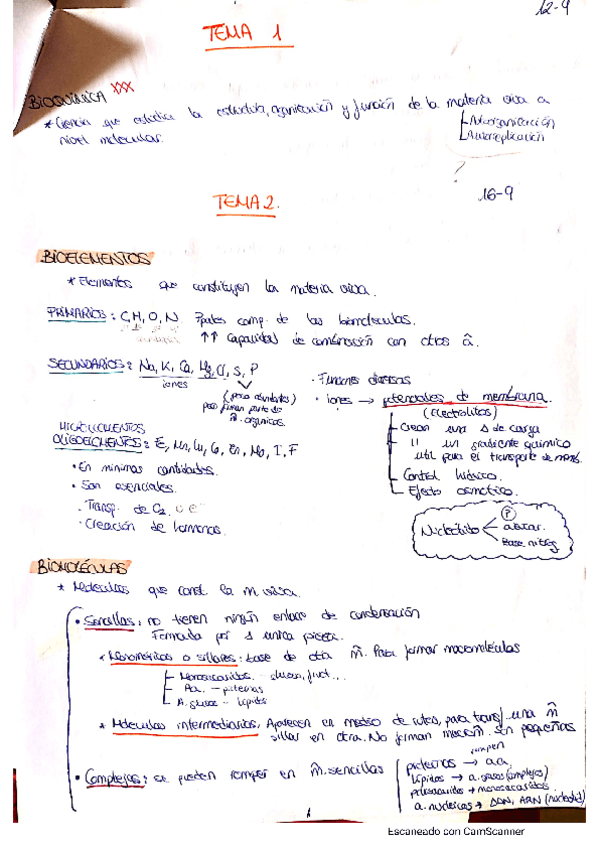 12-9
TEMA 1
BIOQUÍMICA XXX
* Ciencia que estudia la estructura, organización y función de la materia viva a
nivel molecular.
Autoorganización
Autoreplicación
?
TEMA 2.
16-9
BIOELEMENTOS
* Elementos que constituyen la materia viva.
PRIMARIOS: C, H, O, N comp. de las biomoléculas.
↑↑ Capacidad de combinación con otros
SECUNDARIOS: Na, K, Ca, Mg, Cl, S, P
iones
(poco abundantes)
pero forman parte de
orgánicas.
· Funciones diversas
· iones → potenciales de membrana.
(Electrolitos)
Crean una de carga
" un gradiente químico
útil para el transporte de
Control hídrico.
Efecto osmótico.
OLIGOELEMENTOS: I, F
· En mínimas cantidades.
· Son esenciales.
· Transp. de O₂
· Creación de hormonas.
Nucleótido
P
azúcar.
Base nitrog
BIOMOLÉCULAS
* Moléculas que const. la m. viva.
· Sencillas: no tienen ningún enlace de condensación
Formada por 1 única pieza.
* Monoméricas o sillares: base de otra m. Para formar macromoléculas
Monosacáridos - glucosa, fruct...
Aa. - proteínas
A. graso - lípidos
* Moléculas intermediarias. Aparecen en medio de rutas, para transf. una m
sillar en otra. No forman macrom. Son pequeñas
· Complejas: se pueden romper en m. sencillas
rompen
proteínas → a.a.
Lípidos → a. grasos (complejos)
polisacáridos → monosacáridos.
a. nucleicos → ADN, ARN (nucleótid)
1
Escaneado con CamScanner